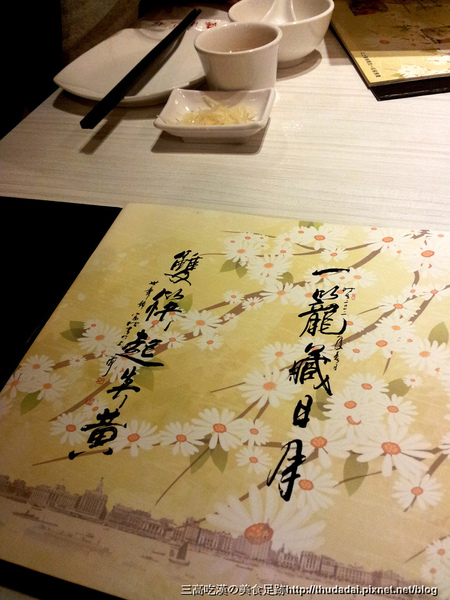 一籠藏日月
雙筷起炎黃
三高吃漢の美食足跡http://thudadai.pixnet.net/blog